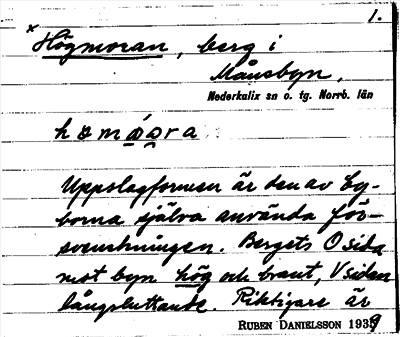 1.
x
Högmoran, berg i
Månsbyn,
Nederkalix sn o. tg. Norrb. län
Uppslagformen är den av by-
borna själva använda för-
svenskningen. Bergets O sida
mot byn hög och brant, V sidan
långsluttande. Riktigare är
RUBEN DANIELSSON 1939